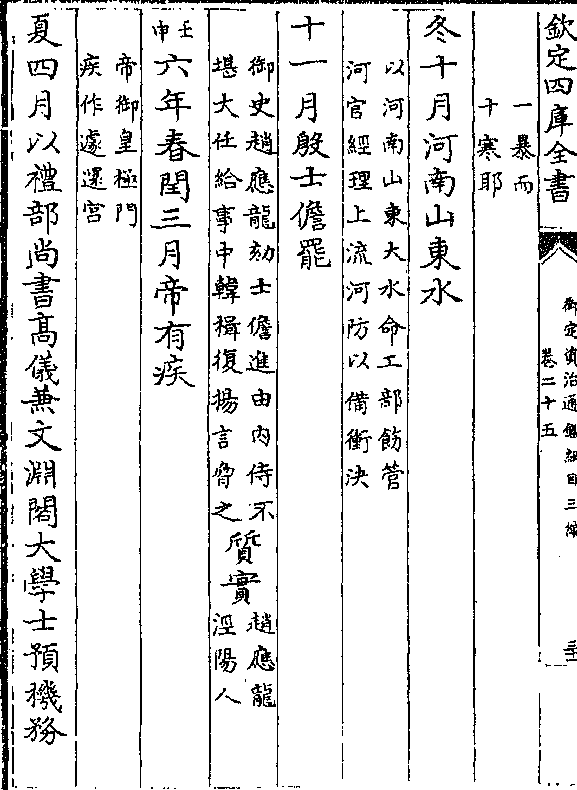 欽定四庫全書
御定資治通鑑綱目三編
卷二十五
一暴而
十寒耶
冬十月河南山東水
以河南山東大水命工部飭管
河官經理上流河防以備衝決
十一月殷士儋罷
御史趙應龍劾士儋進由內侍不
堪大任給事中韓楫復揚言脅之
質實
趙應龍
涇陽人
壬申
六年春閏三月帝有疾
帝御皇極門
疾作遽還宫
夏四月以禮部尚書高儀兼文淵閣大學士預機務